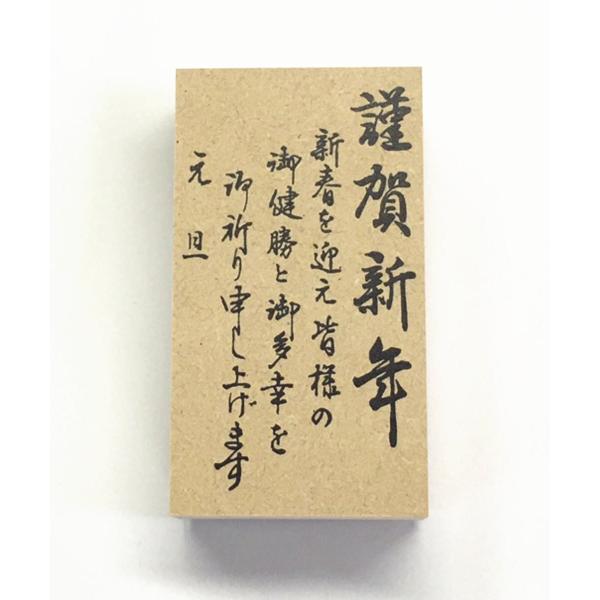 謹賀新年
新春を迎え皆様の
御健勝と御多幸を
御祈り申し上げます
元旦